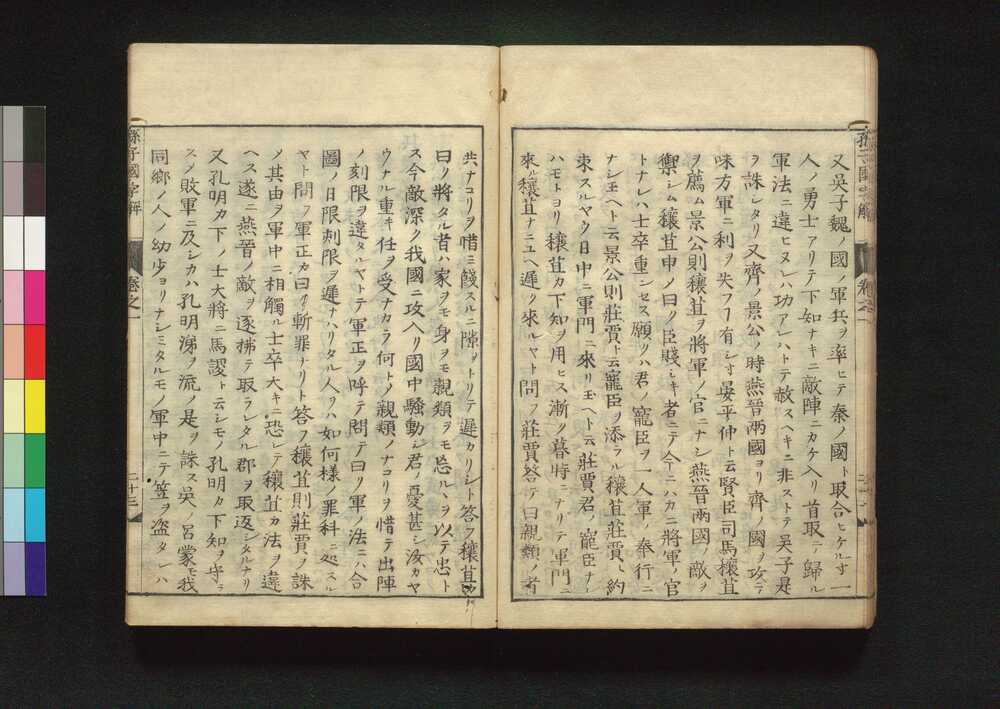 又吳子魏ノ國ノ軍兵ヲ率ヒテ秦ノ國ト取合ヒケルす一
人ノ勇士アリテ下知ナキニ敵陣ニカケ入リ首取テ歸ル
軍法ニ違ヒヌレハ功アレハトテ赦スヘキニ非ストテ吳子是
ヲ誅シタリ又齊ノ景公ノ時燕晉兩國ヨリ齊ノ國ヲ攻テ
味方軍ニ利ヲ失フフ有シす晏平仲ト云賢臣司馬穰苴
ヲ薦ム景公則穰苴ヲ將軍ノ官ニナシ燕晉兩國ノ敵ヲ
禦シム穰苴申ノ曰ク臣賤シキ者ニテ今ニハカニ將軍ノ官
トナレハ士卒重ンセス願クハ君ノ寵臣ヲ一人軍ノ奉行ニ
ナシ玉ヘト云景公則莊賈ト云寵臣ヲ添ラル穰苴莊賈ト約
束スルヤウ日中ニ軍門ニ來リ玉ヘト云莊賈君ノ寵臣ナレ
ハモトヨリ穰苴カ下知ヲ用ヒス漸ク暮時ニテリテ軍門ニ
來ル穰苴ナニユヘ遲ク來ルヤト問フ莊賈答テ曰親類ノ者
共ナコリヲ惜ミ餞スルニ隙ヲトリテ遲カリシト答フ穰苴
曰ク將タル者ハ家ヲモ身ヲモ親類ヲモ忘ルヽヲ以テ忠ト
ス今敵深ク我國ニ攻入リ國中騷動シ君ノ憂甚シ汝カヤ
ウナル重キ任ヲ受ナカラ何トノ親類ノナコリヲ惜テ出陣
ノ刻限ヲ違タルヤトテ軍正ヲ呼テ問テ曰ク軍ノ法ニハ合
圖ノ日限刻限ヲ遲ナハリタル人ヲハ如何樣ノ罪科ニ処スル
ヤト問フ軍正カ曰ク斬罪ナリト答フ穰苴則莊賈ヲ誅
メ其由ヲ軍中ニ相觸ル士卒大キニ恐レテ穰苴カ法ヲ違
ヘス遂ニ燕晉ノ敵ヲ逐拂テ取ラレタル郡ヲ取返シタルナリ
又孔明カ下ノ士大將ニ馬謖ト云シモノ孔明カ下知ヲ守ラ
スノ敗軍ニ及シカハ孔明涕ヲ流ノ是ヲ誅ス吳ノ呂蒙モ我
同鄉ノ人ノ幼少ヨリナシミタルモノ軍中ニテ笠ヲ盜タレハ
孫子國字解
卷之一
二十三